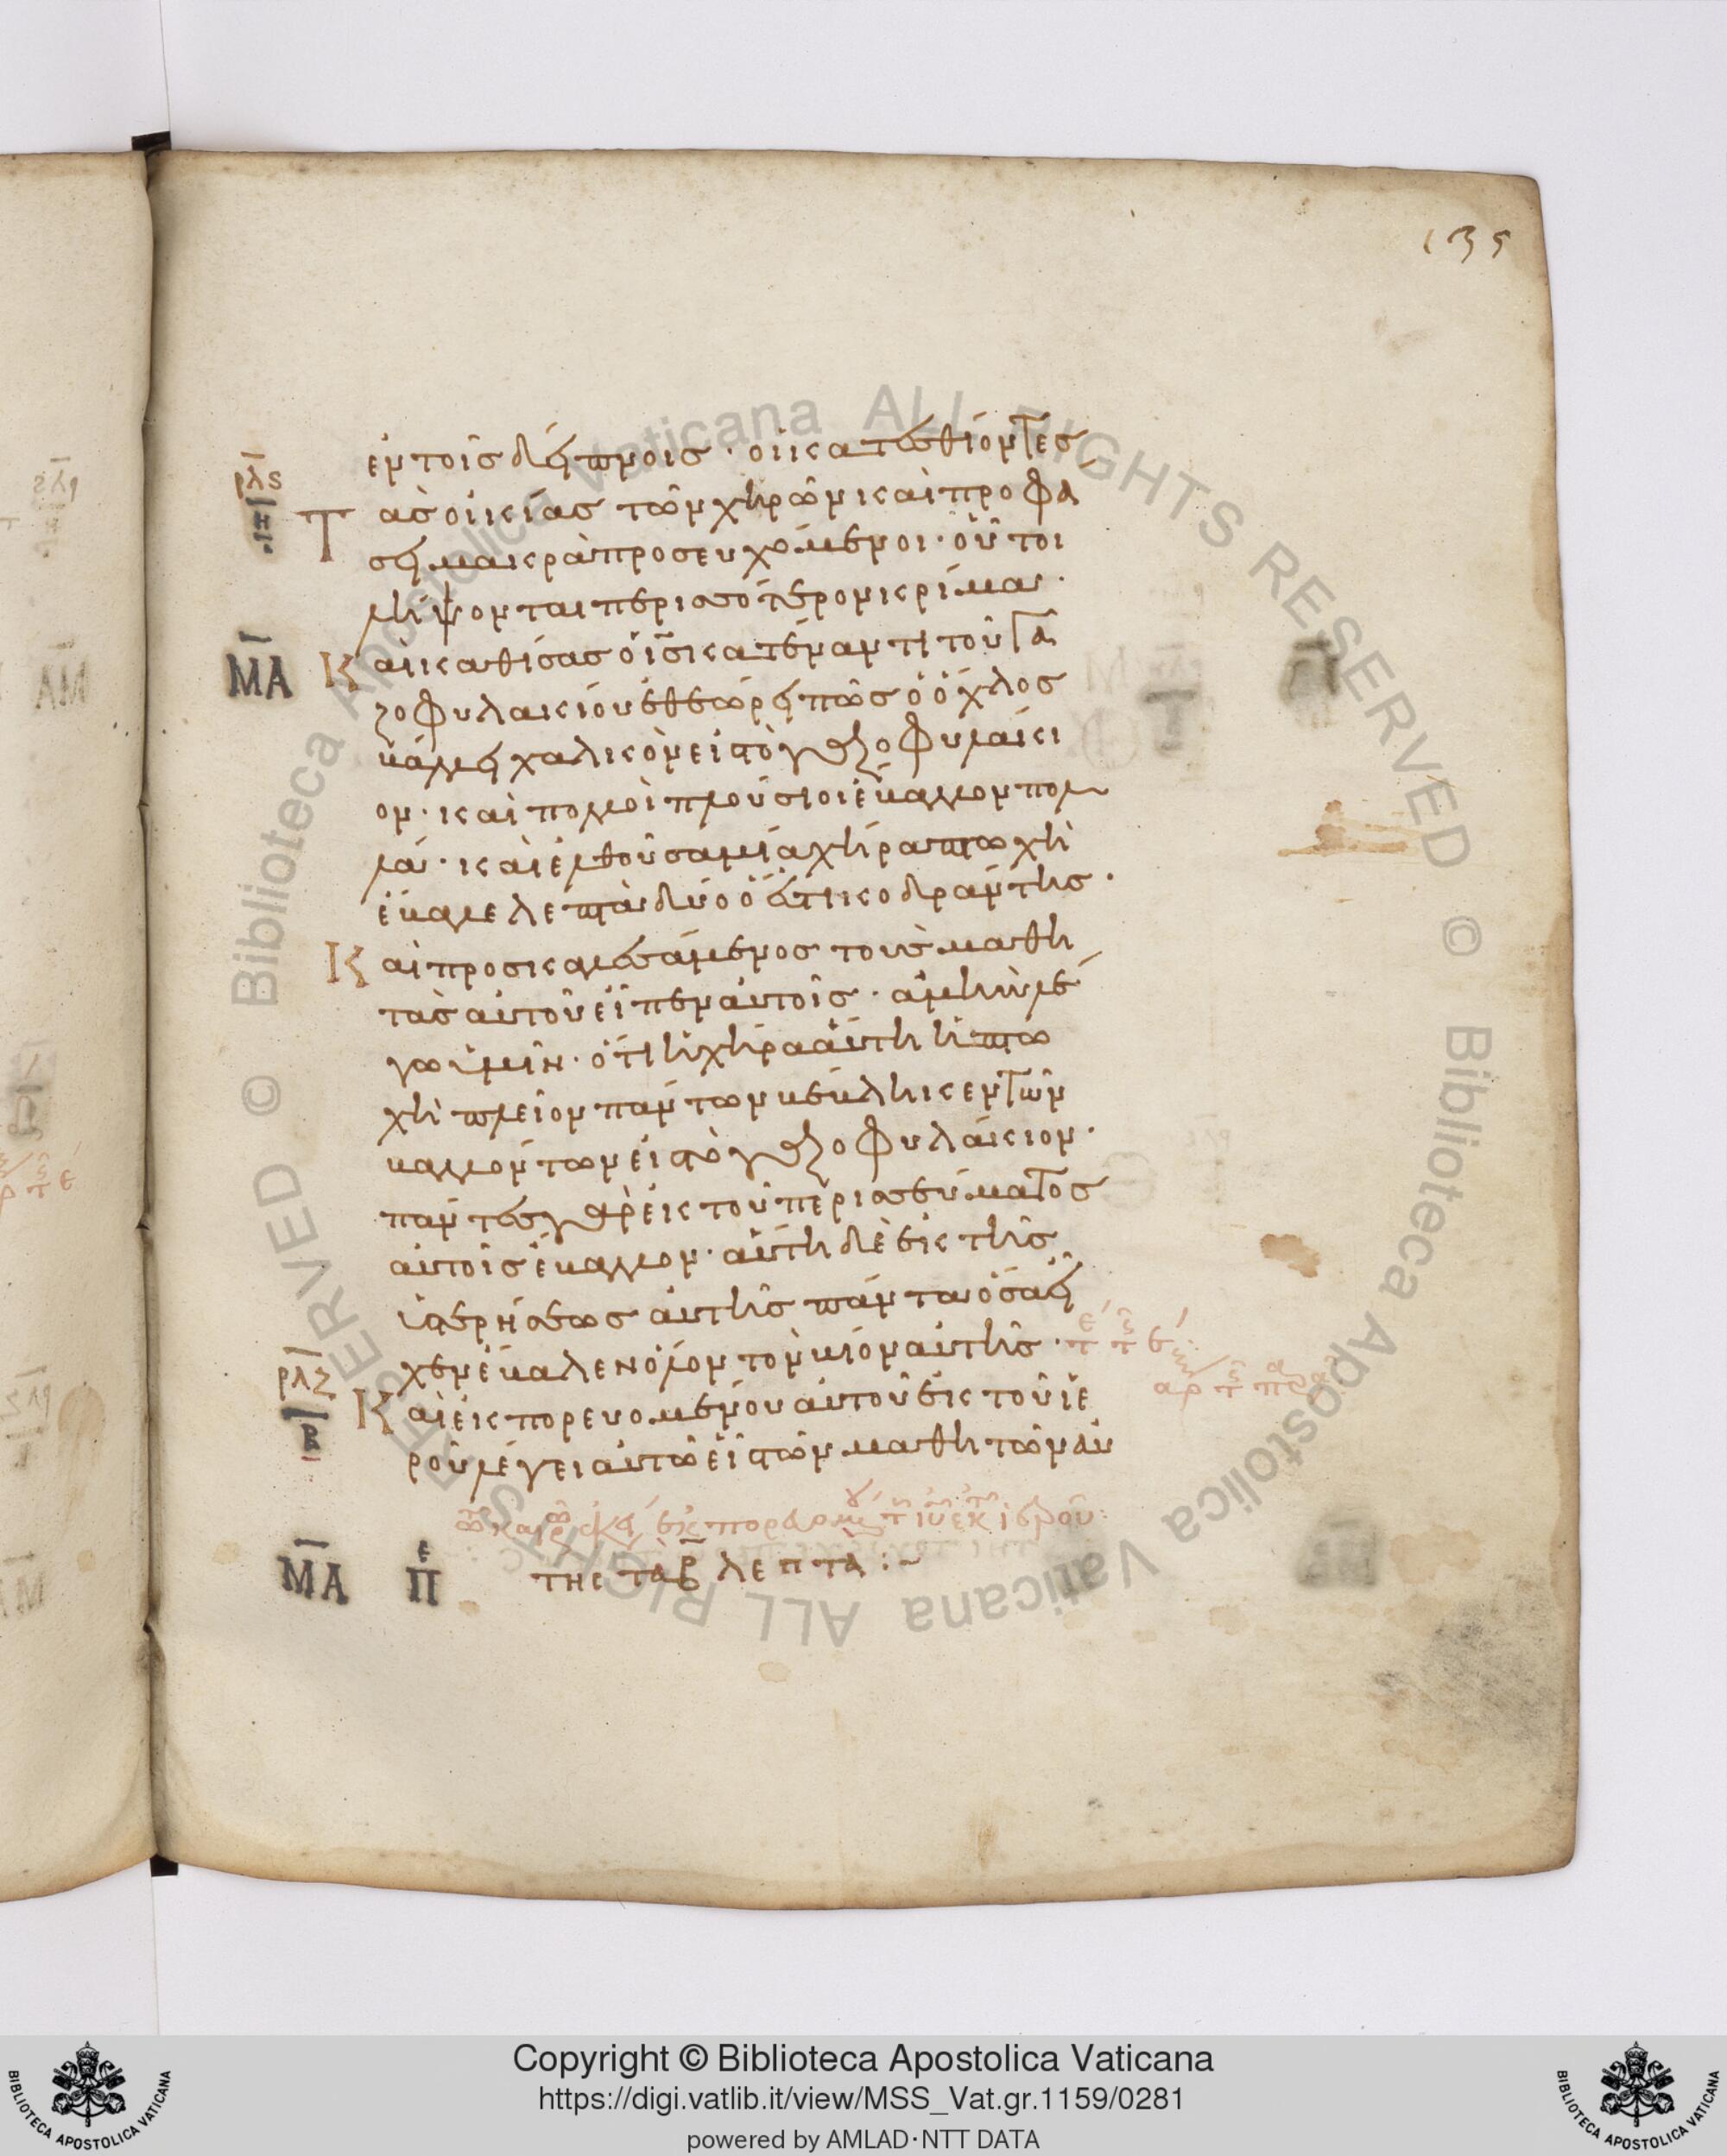 135
ἐν τοῖς δείπνοις · οἱ κατεσθίοντες
ρλς
Τὰς οἰκίας τῶν χηρῶν καὶ προφά
σει μακρὰ προσευχόμενοι · οὗτοι
λήψονται περισσότερον κρίμα ·
ΜΑ Καὶ καθίσας ὁ ι̅σ̅ κατέναντι τοῦ γα
ζοφυλακίου ἐθεώρει πῶς ὁ ὄχλος
βάλλει χαλκὸν εἰς τὸ γαζοφυλάκι
ον · καὶ πολλοὶ πλούσιοι ἔβαλλον πολ
λά · καὶ ἐλθοῦσα μία χήρα πτωχὴ
ἔβαλε λεπτὰ δύο ὅ ἐστι κοδράντης ·
Καὶ προσκαλεσάμενος τοὺς μαθη
τὰς αὐτοῦ εἶπεν αὐτοῖς · ἀμὴν λέ
γω ὑμῖν · ὅτι ἡ χήρα αὕτη ἡ πτω
χὴ πλεῖον πάντων βέβληκεν τῶν
βαλλόντων εἰς τὸ γαζοφυλάκιον ·
πάντες γὰρ ἐκ τοῦ περισσεύματος
αὐτοῖς ἔβαλλον · αὕτη δὲ ἐκ τῆς
ὑστερήσεως αὐτῆς πάντα ὅσα εἶ
χεν ἔβαλεν ὅλον τὸν βίον αὐτῆς ·
ρλζ
Β
Καὶ ἐκπορευομένου αὐτοῦ ἐκ τοῦ ἱε
ροῦ λέγει αὐτῷ εἷς τῶν μαθητῶν αὐ
ΜΑ Π τῆς τὰ β λεπτά :~
Copyright © Biblioteca Apostolica Vaticana
https://digi.vatlib.it/view/MSS_Vat.gr.1159/0281
powered by AMLAD·NTT DATA
BIBLIOTECA APOSTOLICA VATICANA
BIBLIOTECA APOSTOLICA VATICANA
© Biblioteca Apostolica Vaticana ALL RIGHTS RESERVED
© Biblioteca Apostolica Vaticana ALL RIGHTS RESERVED